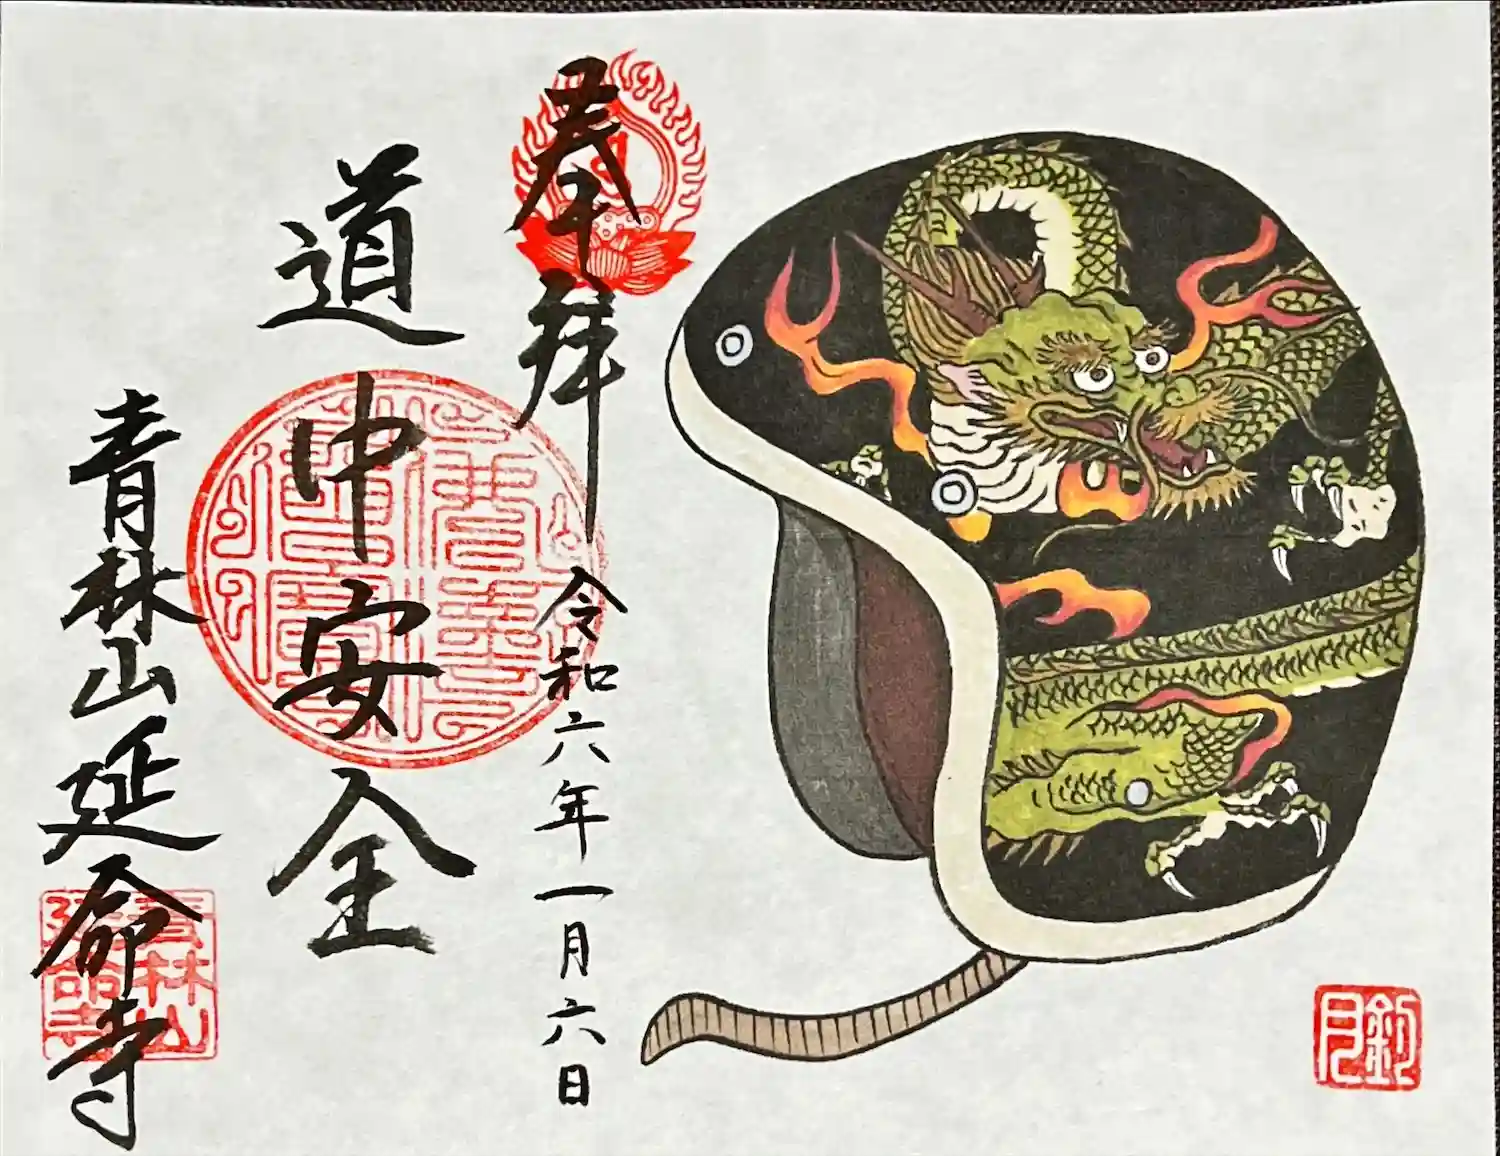 奉拝
令和六年一月六日
道中安全
青林山延命寺
青林山
延命寺